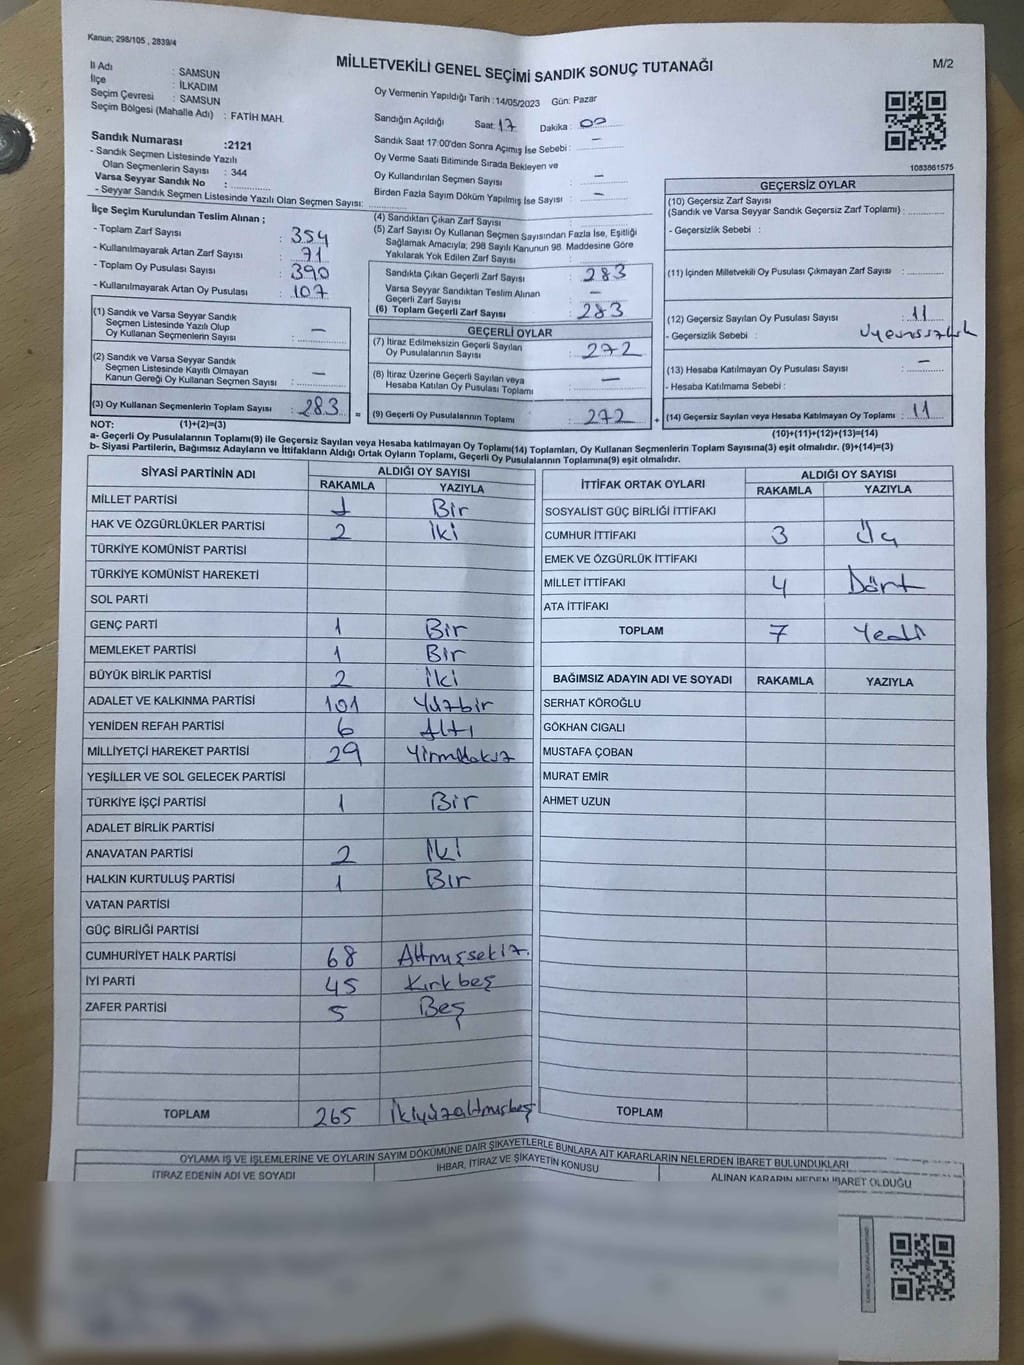 Kanun; 298/105 , 2839/4
MİLLETVEKİLİ GENEL SEÇİMİ SANDIK SONUÇ TUTANAĞI
M/2
İl Adı : SAMSUN
İlçe : İLKADIM
Seçim Çevresi : SAMSUN
Seçim Bölgesi (Mahalle Adı) : FATİH MAH.
Sandık Numarası :2121
- Sandık Seçmen Listesinde Yazılı
Olan Seçmenlerin Sayısı : 344
Varsa Seyyar Sandık No :
- Seyyar Sandık Seçmen Listesinde Yazılı Olan Seçmen Sayısı:
Oy Vermenin Yapıldığı Tarih :14/05/2023 Gün: Pazar
Sandığın Açıldığı Saat: 17 Dakika : 00
Sandık Saat 17:00'den Sonra Açımış İse Sebebi : –
Oy Verme Saati Bitiminde Sırada Bekleyen ve
Oy Kullandırılan Seçmen Sayısı : –
Birden Fazla Sayım Döküm Yapılmış İse Sayısı : –
1083861575
İlçe Seçim Kurulundan Teslim Alınan ;
- Toplam Zarf Sayısı : 354
- Kullanılmayarak Artan Zarf Sayısı : 71
- Toplam Oy Pusulası Sayısı : 390
- Kullanılmayarak Artan Oy Pusulası : 107
(1) Sandık ve Varsa Seyyar Sandık
Seçmen Listesinde Yazılı Olup
Oy Kullanan Seçmenlerin Sayısı : –
(2) Sandık ve Varsa Seyyar Sandık
Seçmen Listesinde Kayıtlı Olmayan
Kanun Gereği Oy Kullanan Seçmen Sayısı : –
(3) Oy Kullanan Seçmenlerin Toplam Sayısı : 283 =
(4) Sandıktan Çıkan Zarf Sayısı :
(5) Zarf Sayısı Oy Kullanan Seçmen Sayısından Fazla İse, Eşitliği
Sağlamak Amacıyla; 298 Sayılı Kanunun 98. Maddesine Göre
Yakılarak Yok Edilen Zarf Sayısı :
Sandıkta Çıkan Geçerli Zarf Sayısı : 283
Varsa Seyyar Sandıktan Teslim Alınan
Geçerli Zarf Sayısı : –
(6) Toplam Geçerli Zarf Sayısı : 283
GEÇERLİ OYLAR
(7) İtiraz Edilmeksizin Geçerli Sayılan
Oy Pusulalarının Sayısı : 272
(8) İtiraz Üzerine Geçerli Sayılan veya
Hesaba Katılan Oy Pusulası Toplamı : –
(9) Geçerli Oy Pusulalarının Toplamı : 272 +
GEÇERSİZ OYLAR
(10) Geçersiz Zarf Sayısı
(Sandık ve Varsa Seyyar Sandık Geçersiz Zarf Toplamı) :
- Geçersizlik Sebebi :
(11) İçinden Milletvekili Oy Pusulası Çıkmayan Zarf Sayısı :
(12) Geçersiz Sayılan Oy Pusulası Sayısı : 11
- Geçersizlik Sebebi :
(13) Hesaba Katılmayan Oy Pusulası Sayısı : –
- Hesaba Katılmama Sebebi :
(14) Geçersiz Sayılan veya Hesaba Katılmayan Oy Toplamı : 11
NOT: (1)+(2)=(3)
(10)+(11)+(12)+(13)=(14)
a- Geçerli Oy Pusulalarının Toplamı(9) ile Geçersiz Sayılan veya Hesaba katılmayan Oy Toplamı(14) Toplamları, Oy Kullanan Seçmenlerin Toplam Sayısına(3) eşit olmalıdır. (9)+(14)=(3)
b- Siyasi Partilerin, Bağımsız Adayların ve İttifakların Aldığı Ortak Oyların Toplamı, Geçerli Oy Pusulalarının Toplamına(9) eşit olmalıdır.
SİYASİ PARTİNİN ADI ALDIĞI OY SAYISI
RAKAMLA YAZIYLA
MİLLET PARTİSİ 1 Bir
HAK VE ÖZGÜRLÜKLER PARTİSİ 2 İki
TÜRKİYE KOMÜNİST PARTİSİ
TÜRKİYE KOMÜNİST HAREKETİ
SOL PARTİ
GENÇ PARTİ 1 Bir
MEMLEKET PARTİSİ 1 Bir
BÜYÜK BİRLİK PARTİSİ 2 İki
ADALET VE KALKINMA PARTİSİ 101 Yüzbir
YENİDEN REFAH PARTİSİ 6 Altı
MİLLİYETÇİ HAREKET PARTİSİ 29 Yirmidokuz
YEŞİLLER VE SOL GELECEK PARTİSİ
TÜRKİYE İŞÇİ PARTİSİ 1 Bir
ADALET BİRLİK PARTİSİ
ANAVATAN PARTİSİ 2 İki
HALKIN KURTULUŞ PARTİSİ 1 Bir
VATAN PARTİSİ
GÜÇ BİRLİĞİ PARTİSİ
CUMHURİYET HALK PARTİSİ 68 Altmışsekiz.
İYİ PARTİ 45 Kırkbeş
ZAFER PARTİSİ 5 Beş
TOPLAM 265 İkiyüzaltmışbeş
İTTİFAK ORTAK OYLARI ALDIĞI OY SAYISI
RAKAMLA YAZIYLA
SOSYALİST GÜÇ BİRLİĞİ İTTİFAKI
CUMHUR İTTİFAKI 3 Üç
EMEK VE ÖZGÜRLÜK İTTİFAKI
MİLLET İTTİFAKI 4 Dört
ATA İTTİFAKI
TOPLAM 7 Yedi
BAĞIMSIZ ADAYIN ADI VE SOYADI RAKAMLA YAZIYLA
SERHAT KÖROĞLU
GÖKHAN CIGALI
MUSTAFA ÇOBAN
MURAT EMİR
AHMET UZUN
TOPLAM
OYLAMA İŞ VE İŞLEMLERİNE VE OYLARIN SAYIM DÖKÜMÜNE DAİR ŞİKAYETLERLE BUNLARA AİT KARARLARIN NELERDEN İBARET BULUNDUKLARI
İTİRAZ EDENİN ADI VE SOYADI İHBAR, İTİRAZ VE ŞİKAYETİN KONUSU ALINAN KARARIN NEDEN İBARET OLDUĞU